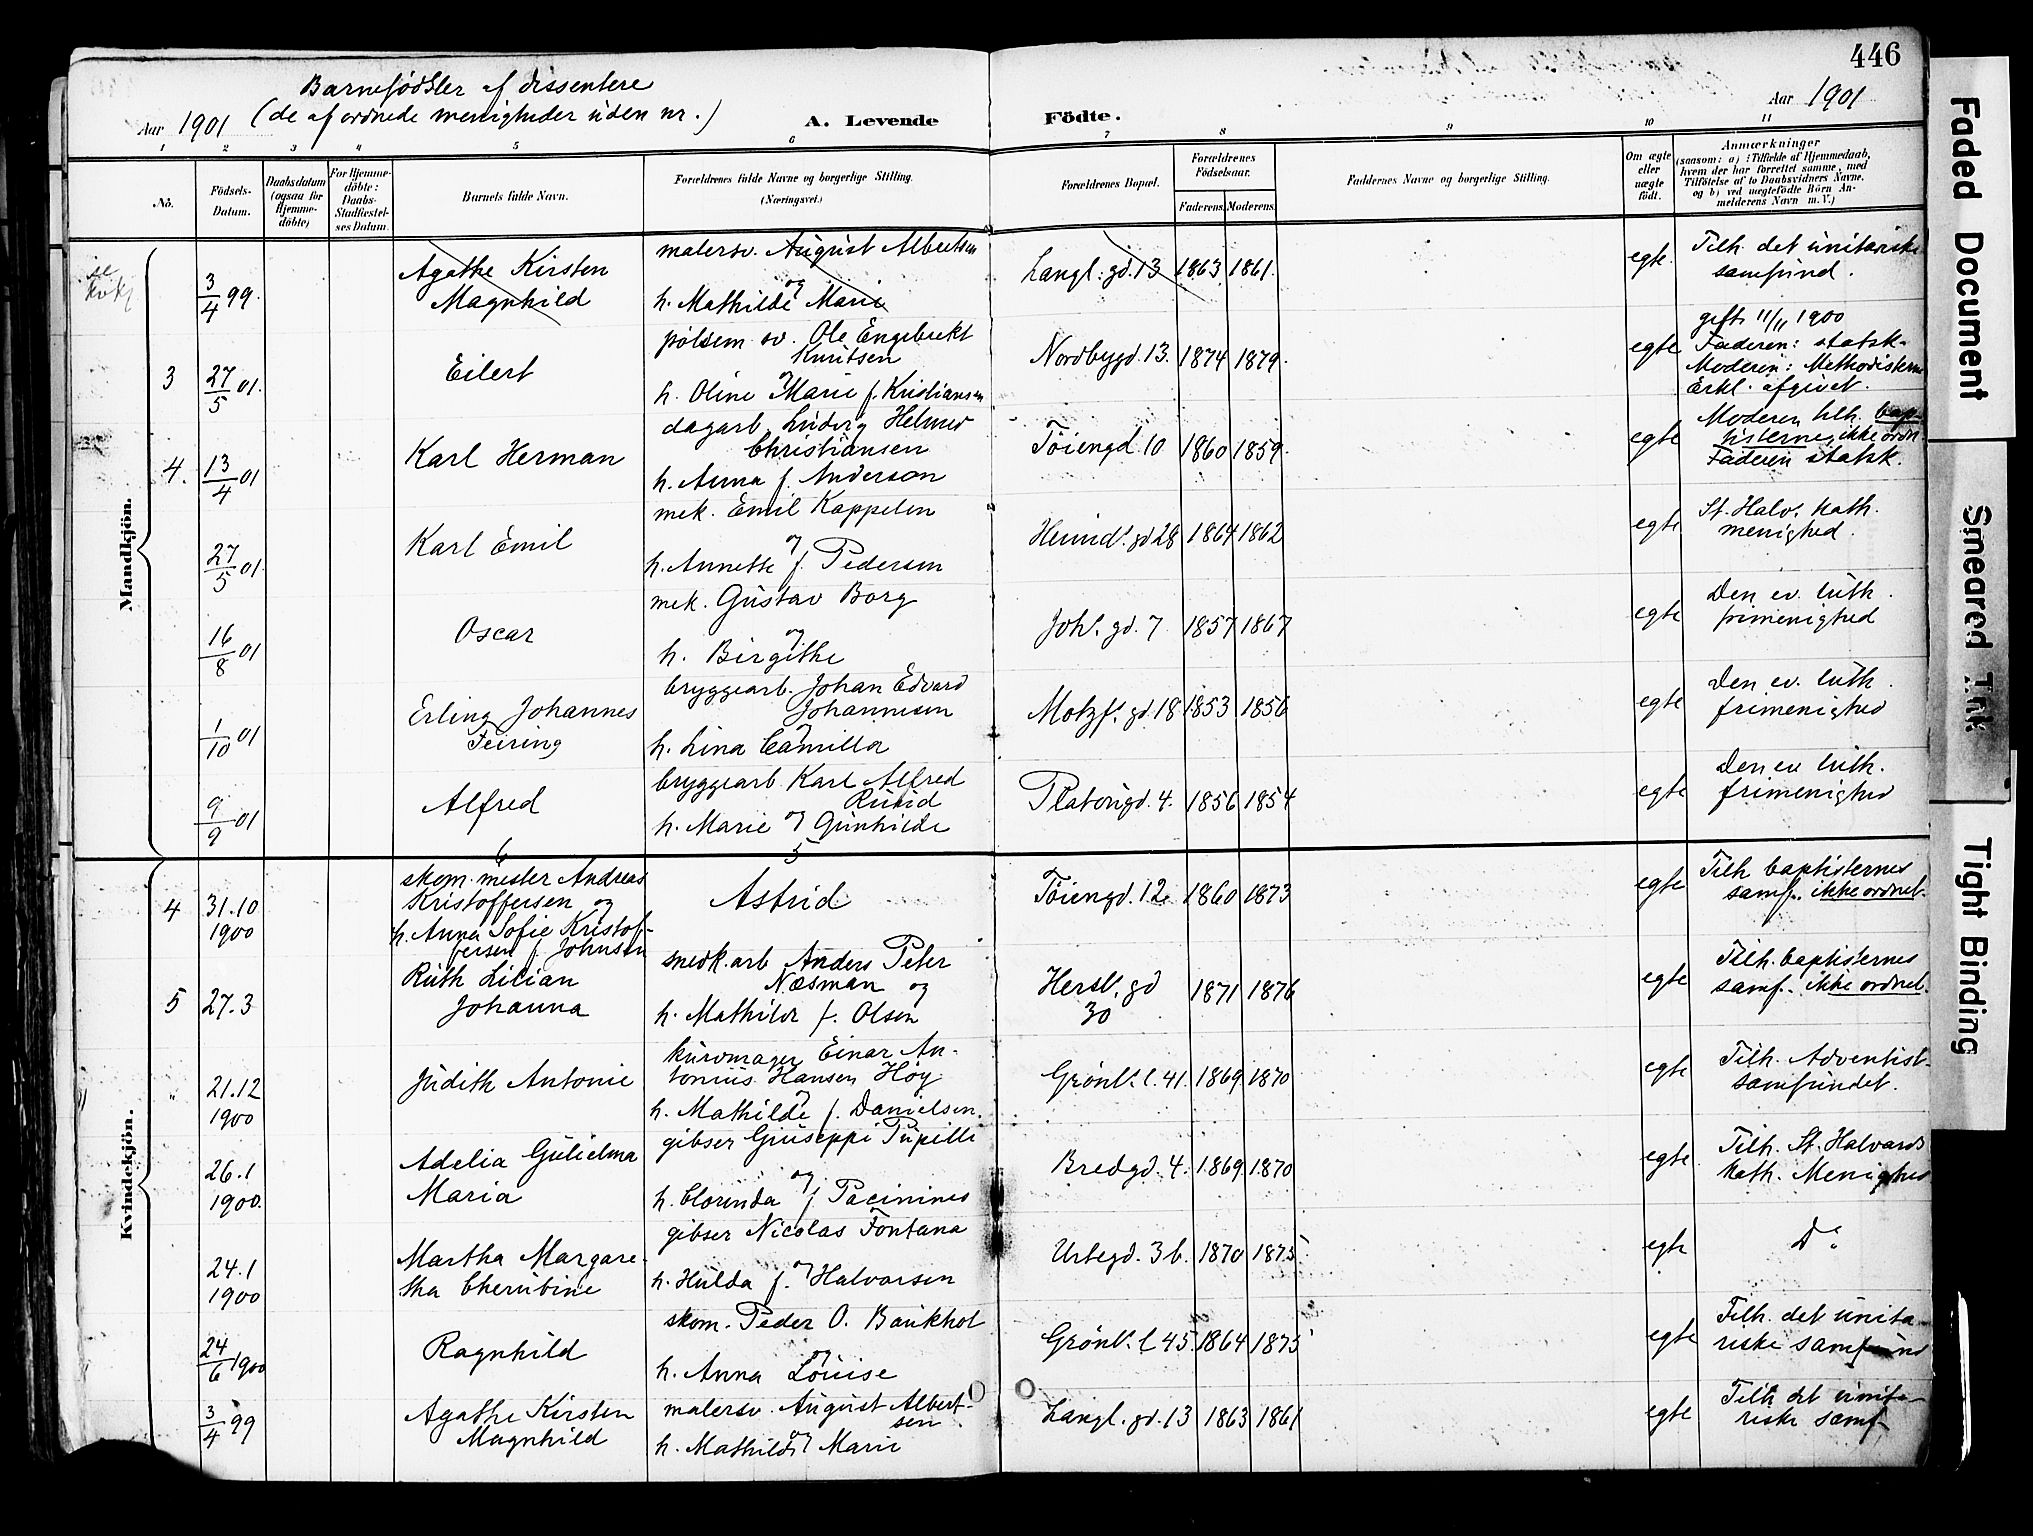 446
Barnefødsler af dissentere
Aar 1901 (de af ordnede menigheder uden nr.)
A. Levende Födte.
Aar 1901
1 2 3 4 5 6 7 8 9 10 11
No.
Födsels-Datum.
Daabsdatum (ogsaa for Hjemme-döbte)
For Hjemme-döbte: Daabs-Stadfæstel-ses Datum.
Barnets fulde Navn.
Forældrenes fulde Navne og borgerlige Stilling.
(Næringsvei.)
Forældrenes Bopæl.
Forældrenes Födselsaar.
Faderens. Moderens.
Faddernes Navne og borgerlige Stilling.
Om ægte eller uægte födt.
Anmærkninger
(saasom: a) i Tilfælde af Hjemmedaab, hvem der har forrettet samme, med Tilföielse af to Daabsvidners Navne, og b) ved uægtefödte Börn An-melderens Navn m. V.)
Mandkjön.
se
3/4 99. Agathe Kirsten Magnhild
malersv. August Albertsen og h. Mathilde Marie
Langl. gd. 13 1863 1861. egte. Tilh. det unitariske samfund.
3 27/5 01. Eilert
pølsem. sv. Ole Engebrekt Knutsen og h. Oline Marie f. Kristiansen
Nordbygd. 13. 1874 1879. egte gift 11/11 1900 Faderen: statsk. Moderen: Methodisterne Erkl. afgivet.
4. 13/4 01 Karl Herman
dagarb. Ludvig Helmer Christiansen h. Anna f. Anderson
Tøiengd. 10 1860 1859. egte Moderen tilh. baptisterne, ikke ordn. Faderen statsk.
27/5 01. Karl Emil
mek. Emil Kappelen og h. Annette f. Pedersen
Heimd. gd 28 1864 1862 egte St. Halv. kath. menighed.
16/8 01 Oscar
mek. Gustav Borg og h. Birgithe
Joh. gd. 7 1857 1867 egte Den ev. luth. frimenighed
1/10 01 Erling Johannes Feiring
bryggearb. Johan Edvard Johannesen og h. Lina Camilla
Motzf. gd. 18 1853 1856 egte Den ev. luth. frimenighed
9/9 01 Alfred
bryggearb. Karl Alfred h. Marie og Gunhilde
Platousgd. 4. 1856 1854 egte Den ev. luth. frimenighed
Kvindekjön.
6 5
4 31.10 1900 skom. mester Andreas Kristoffersen og h. Anna Sofie Kristoffersen f. Johnsen
Astrid
Tøiengd. 12 1860 1873 egte Tilh baptisternes samf. ikke ordnet.
5 27.3 Ruth Lilian Johanna
snedk.arb Anders Peter Næsman og h. Mathilde f. Olsen
Hersl. gd 30 1871 1876 egte Tilh. baptisternes samf. ikke ordnet.
" 21.12 1900 Judith Antonie
kurvmager Einar Antonius Hansen Høy og h. Mathilde f. Danielsen.
Grønl. l. 41. 1869 1870 egte Tilh. Adventistsamfundet.
26.1 1900. Adelia Gulielma Maria
gibser Giuseppi Pupilli og h. Clorinda f. Pacinines
Bredgd. 4. 1869 1870 egte Tilh. St. Halvards kath. Menighed
24.1 1900 Martha Margaretha Cherubine
gibser Nicolas Fontana og h. Hulda f. Halvorsen
Urtegd. 3b. 1870 1875 egte Do
24/6 1900 Ragnhild
skom. Peder O. Baukhol og h. Anna Louise
Grønl. l 45. 1864 1875 egte Tilh. det unitariske samfund
3/4 99 Agathe Kirsten Magnhild
malersv. August Albertsen og h. Mathilde Marie
Langl. gd. 13 1863 1861 egte Tilh det unitariske samf
Faded Document
Smeared Ink
Tight Binding